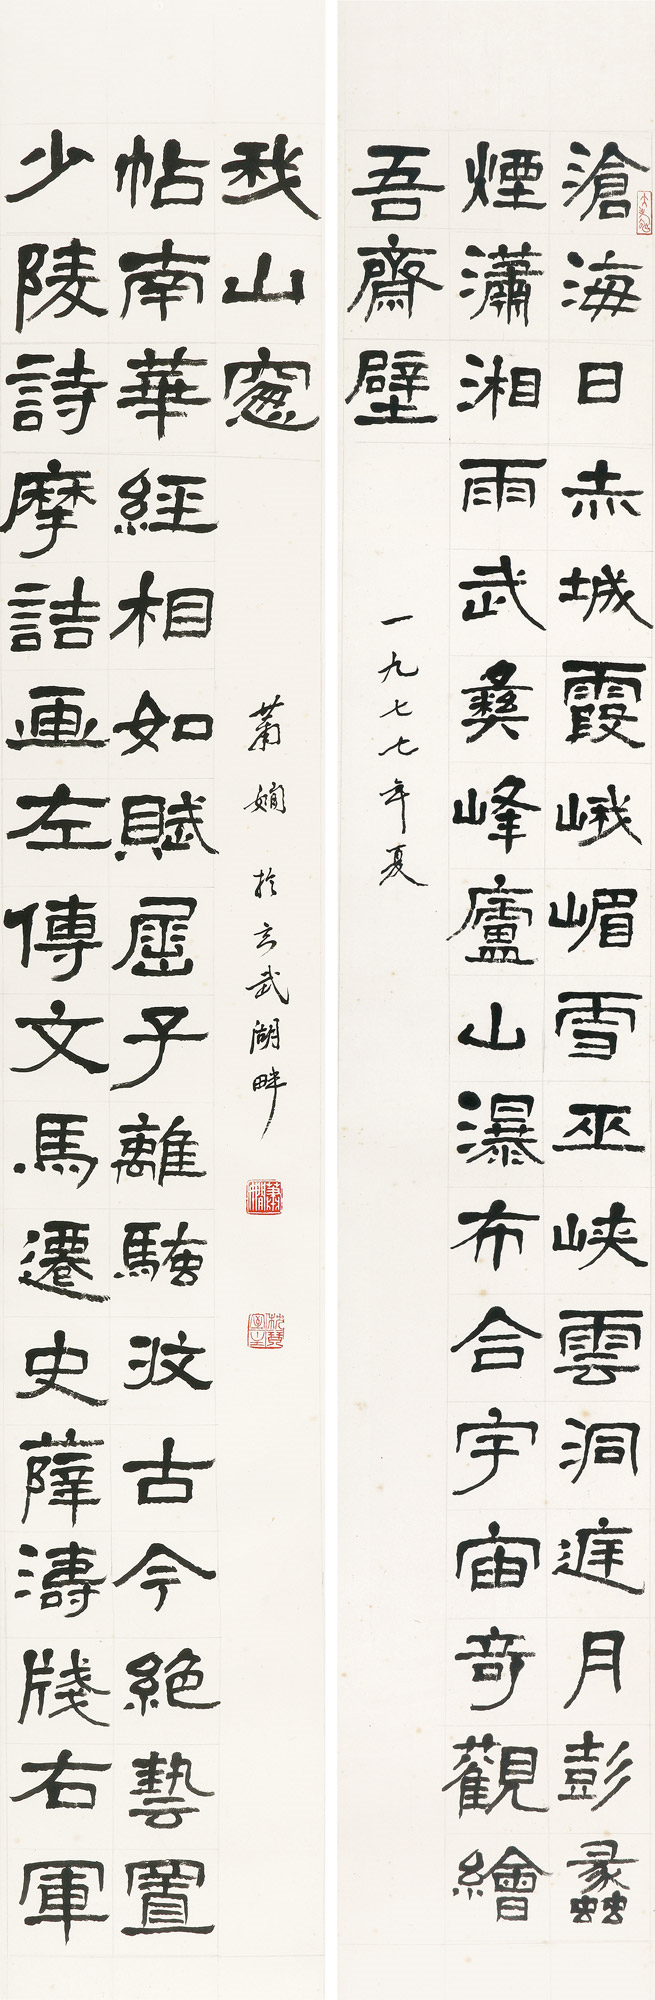 滄海日赤城霞峨嵋雪巫峽雲洞庭月彭蠡
煙瀟湘雨武彝峰廬山瀑布合宇宙奇觀繪
吾齋壁
一九七七年夏
少陵詩摩詰畫左傳文馬遷史薛濤牋右軍
帖南華經相如賦屈子離騷收古今絕藝置
我山窻
蕭嫻 於玄武湖畔
蕭嫻
枕琴室主